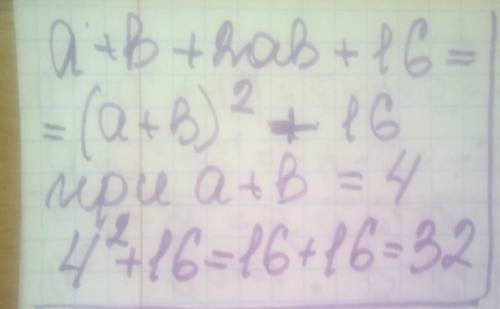 a + b + 2ab + 16 =
= (a + b)² + 16
при a + b = 4
4² + 16 = 16 + 16 = 32